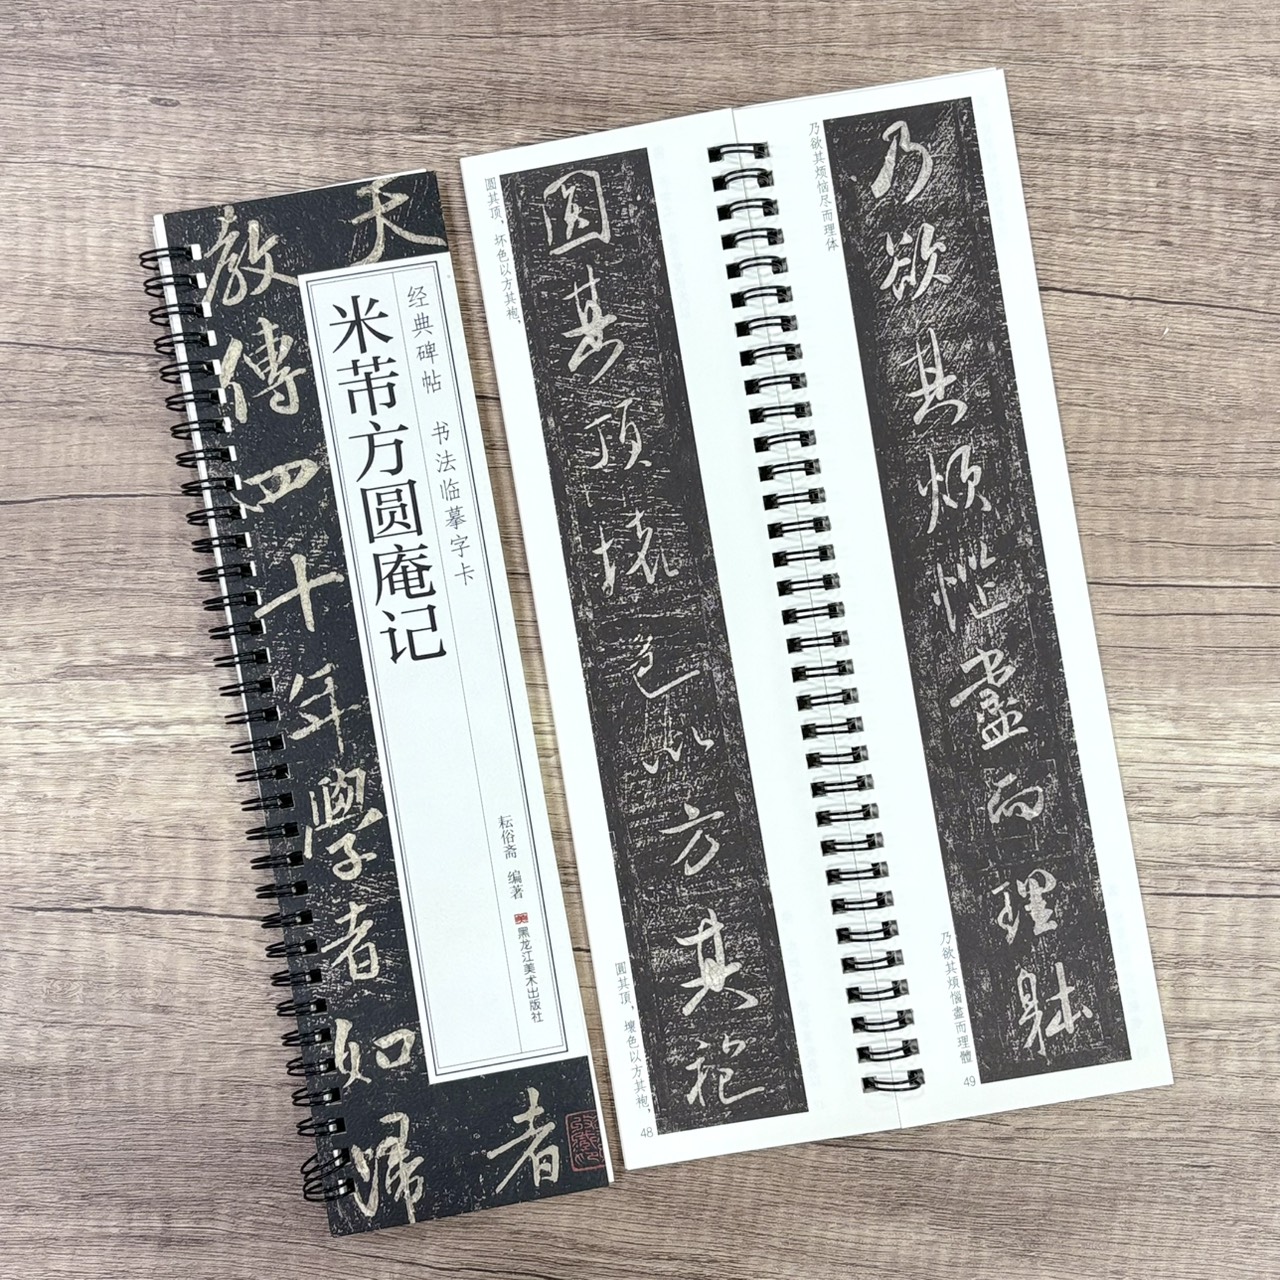 天
教傳四十年學者如歸
者
经典碑帖 书法临摹字卡
米芾方圆庵记
耘俗斋 编著
黑龙江美术出版社
圆其顶，坏色以方其袍，
圓其頂壞色以方其袍
圓其頂，壞色以方其袍，
48
乃欲其烦恼尽而理体
乃欲其煩惱盡而理躰
乃欲其煩惱盡而理體
49